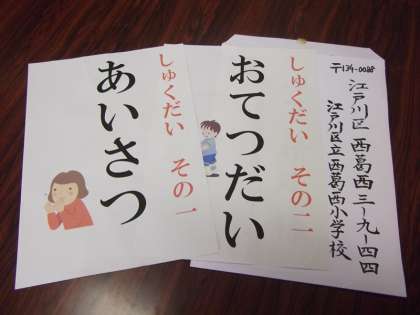 しゅくだい その一
あいさつ
しゅくだい その二
おてつだい
〒134-0088
江戸川区西葛西三-九-四四
江戸川区立西葛西小学校